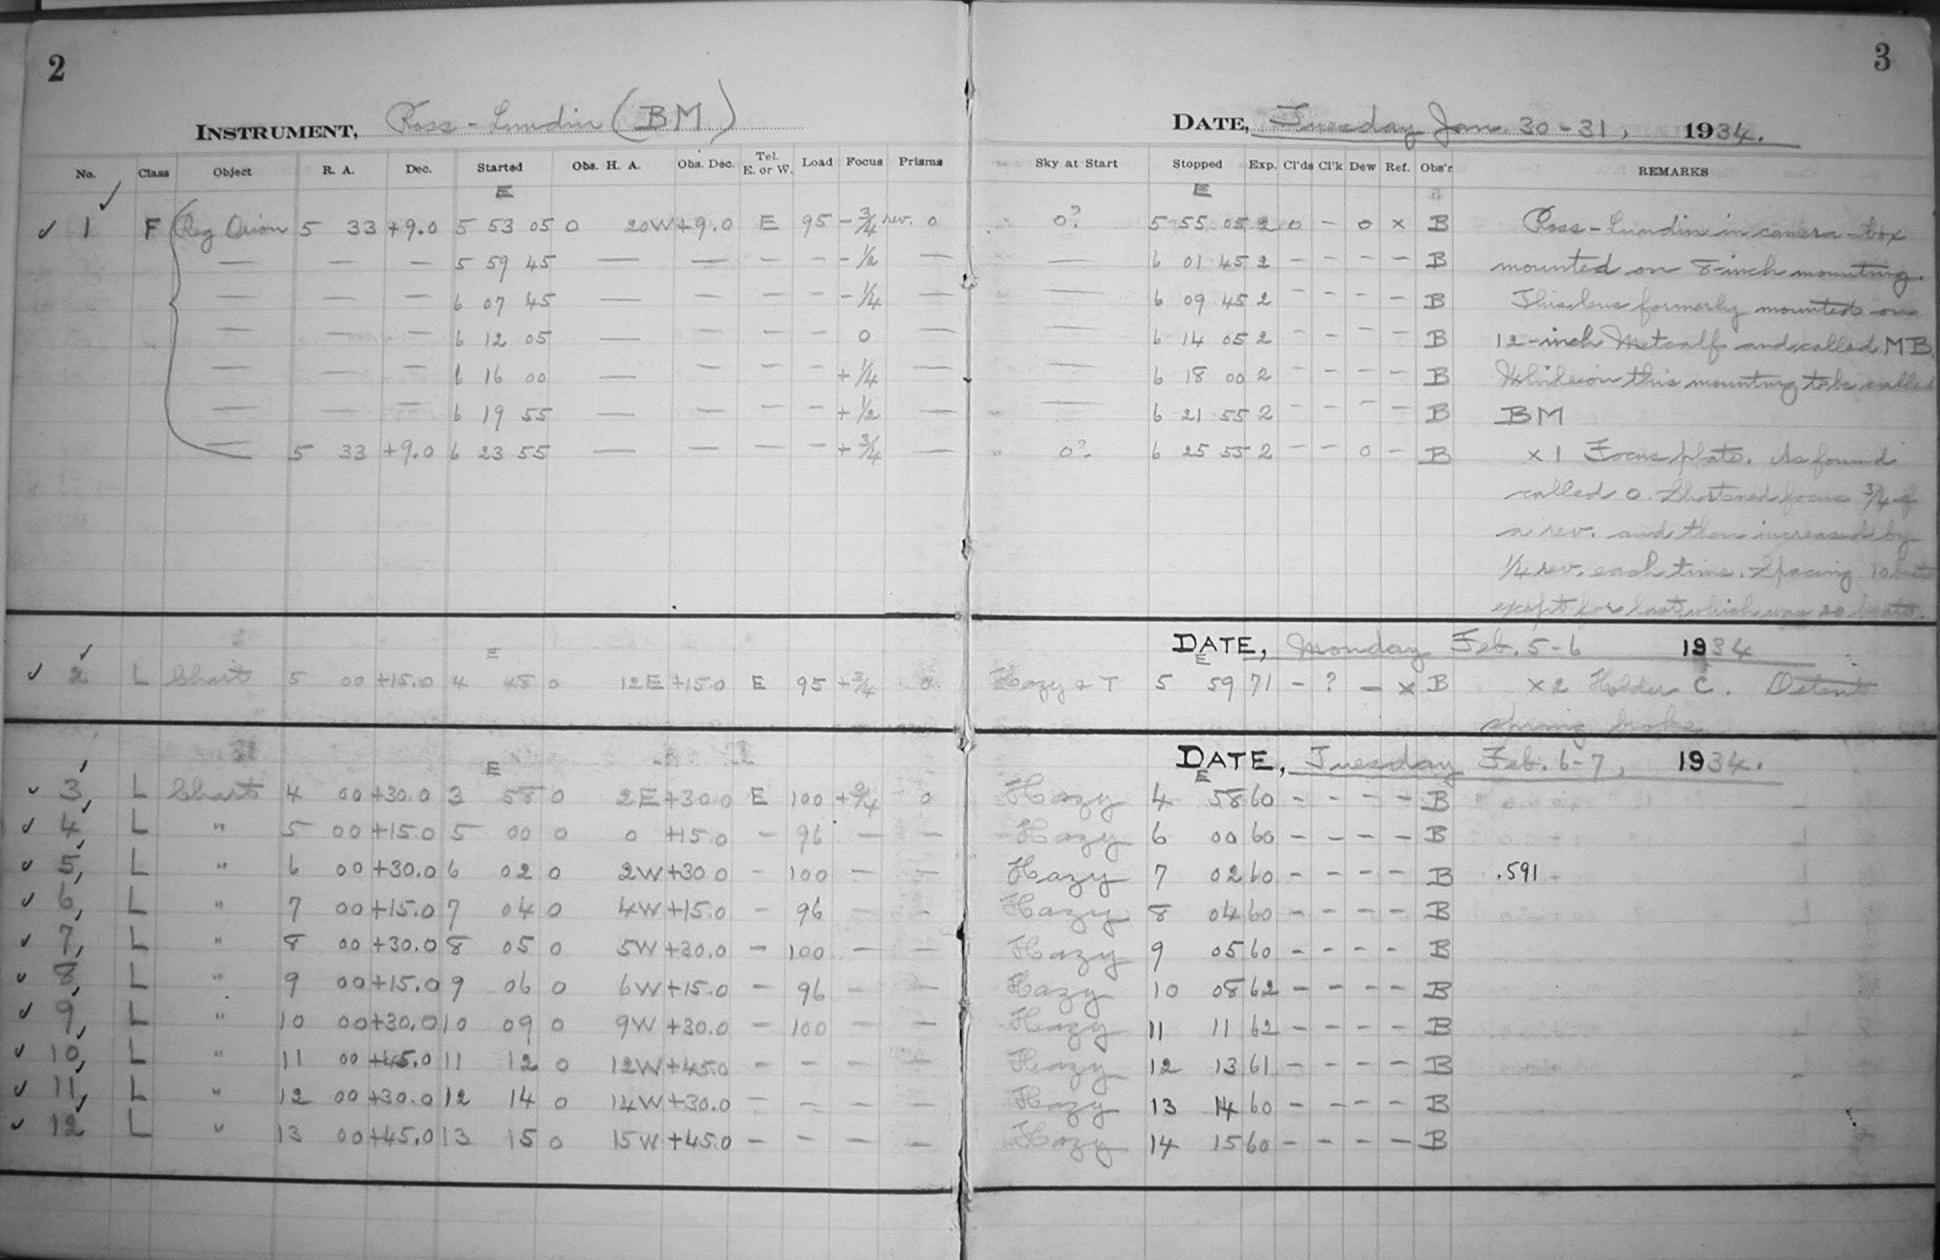 2
INSTRUMENT, Ross-Lundin (BM)
No. Class Object R. A. Dec. Started Obs. H. A. Obs. Dec. Tel. E. or W. Load Focus Prisms
E
✓ 1 ✓ F Reg Orion 5 33 +9.0 5 53 05 0 20W +9.0 E 95 -3/4 rev. 0
— — — 5 59 45 — — — — -1/2 —
— — — 6 07 45 — — — — -1/4 —
— — — 6 12 05 — — — — 0 —
— — — 6 16 00 — — — — +1/4 —
— — — 6 19 55 — — — — +1/2 —
— 5 33 +9.0 6 23 55 — — — — +3/4 —
E
✓ 2 ✓ L Chart 5 00 +15.0 4 48 0 12E +15.0 E 95 +3/4 0
E
✓ 3 ✓ L Chart 4 00 +30.0 3 58 0 2E +30.0 E 100 +3/4 0
✓ 4 ✓ L " 5 00 +15.0 5 00 0 0 +15.0 - 96 — —
✓ 5 ✓ L " 6 00 +30.0 6 02 0 2W +30.0 - 100 — —
✓ 6 ✓ L " 7 00 +15.0 7 04 0 4W +15.0 - 96 — —
✓ 7 ✓ L " 8 00 +30.0 8 05 0 5W +30.0 - 100 — —
✓ 8 ✓ L " 9 00 +15.0 9 06 0 6W +15.0 - 96 — —
✓ 9 ✓ L " 10 00 +30.0 10 09 0 9W +30.0 - 100 — —
✓ 10 ✓ L " 11 00 +45.0 11 12 0 12W +45.0 - - — —
✓ 11 ✓ L " 12 00 +30.0 12 14 0 14W +30.0 - - — —
✓ 12 ✓ L " 13 00 +45.0 13 15 0 15W +45.0 - - — —
3
DATE, Tuesday Jan. 30-31, 1934.
Sky at Start Stopped Exp. Cl'ds Cl'k Dew Ref. Obs'r REMARKS
E
0? 5 55 05 2 0 - 0 × B Ross-Lundin in camera-box
— 6 01 45 2 - - - - B mounted on 8-inch mounting.
— 6 09 45 2 - - - - B This lens formerly mounted on
— 6 14 05 2 - - - B 12-inch Metcalf and called MB.
— 6 18 00 2 - - - - B While on this mounting to be called
— 6 21 55 2 - - - - B BM
0? 6 25 55 2 - - 0 - B ×1 Focus plate. As found
called 0. Shortened focus 3/4 of
a rev. and then increased by
1/4 rev. each time. Spacing 10 beats
except for last which was 20 beats.
DATE, Monday Feb. 5-6 1934
E
Hazy & T 5 59 71 - ? - × B ×2 Holder C. Detent
spring broke
DATE, Tuesday Feb. 6-7, 1934.
E
Hazy 4 58 60 - - - - B
Hazy 6 00 60 - - - - B
Hazy 7 02 60 - - - - B .591
Hazy 8 04 60 - - - - B
Hazy 9 05 60 - - - - B
Hazy 10 08 62 - - - - B
Hazy 11 11 62 - - - - B
Hazy 12 13 61 - - - - B
Hazy 13 14 60 - - - - B
Hazy 14 15 60 - - - - B